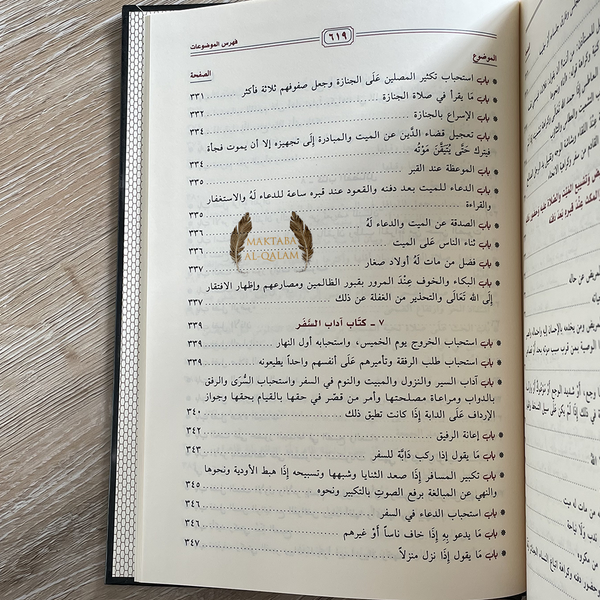 ٦١٩
فهرس الموضوعات
الموضوع
الصفحة
باب استحباب تكثير المصلين عَلَى الجنازة وجعل صفوفهم ثلاثة فأكثر ٣٣١
باب مَا يقرأ في صلاة الجنازة ٣٣٢
باب الإسراع بالجنازة ٣٣٤
باب تعجيل قضاء الدَّين عن الميت والمبادرة إلَى تجهيزه إلا أن يموت فجأة
فيترك حَتَّى يُتَيَقَّنَ مَوْتُه ٣٣٤
باب الموعظة عند القبر ٣٣٥
باب الدعاء للميت بعد دفنه والقعود عند قبره ساعة للدعاء لَهُ والاستغفار
والقراءة ٣٣٥
باب الصدقة عن الميت والدعاء لَهُ ٣٣٦
باب ثناء الناس عَلَى الميت ٣٣٦
باب فضل من مات لَهُ أولاد صغار ٣٣٧
باب البكاء والخوف عِنْدَ المرور بقبور الظالمين ومصارعهم وإظهار الافتقار
إلَى الله تَعَالَى والتحذير من الغفلة عن ذلك ٣٣٧
٧ - كتَاب آداب السَّفَر ٣٣٩
باب استحباب الخروج يوم الخميس، واستحبابه أول النهار ٣٣٩
باب استحباب طلب الرفقة وتأميرهم عَلَى أنفسهم واحداً يطيعونه ٣٣٩
باب آداب السير والنزول والمبيت والنوم في السفر واستحباب السُّرَى والرفق
بالدواب ومراعاة مصلحتها وأمر من قصّر في حقها بالقيام بحقها وجواز
الإرداف عَلَى الدابة إِذَا كانت تطيق ذلك ٣٤٠
باب إعانة الرفيق ٣٤٢
باب مَا يقول إِذَا ركب دَابَّة للسفر ٣٤٣
باب تكبير المسافر إِذَا صعد الثنايا وشبهها وتسبيحه إِذَا هبط الأودية ونحوها
والنهي عن المبالغة برفع الصوتِ بالتكبير ونحوه ٣٤٥
باب استحباب الدعاء في السفر ٣٤٦
باب مَا يدعو بِهِ إِذَا خاف ناساً أَوْ غيرهم ٣٤٦
باب مَا يقول إِذَا نزل منزلاً ٣٤٧
MAKTABA
AL-QALAM